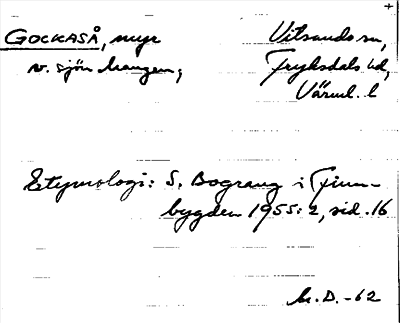 GOCKASÅ, myr
v. sjön Mangen;
Vitsands sn,
Fryksdals hd,
Värml. l
Etymologi: S. Bograng i Finn-
bygden 1955:2, sid. 16
M.D. -62